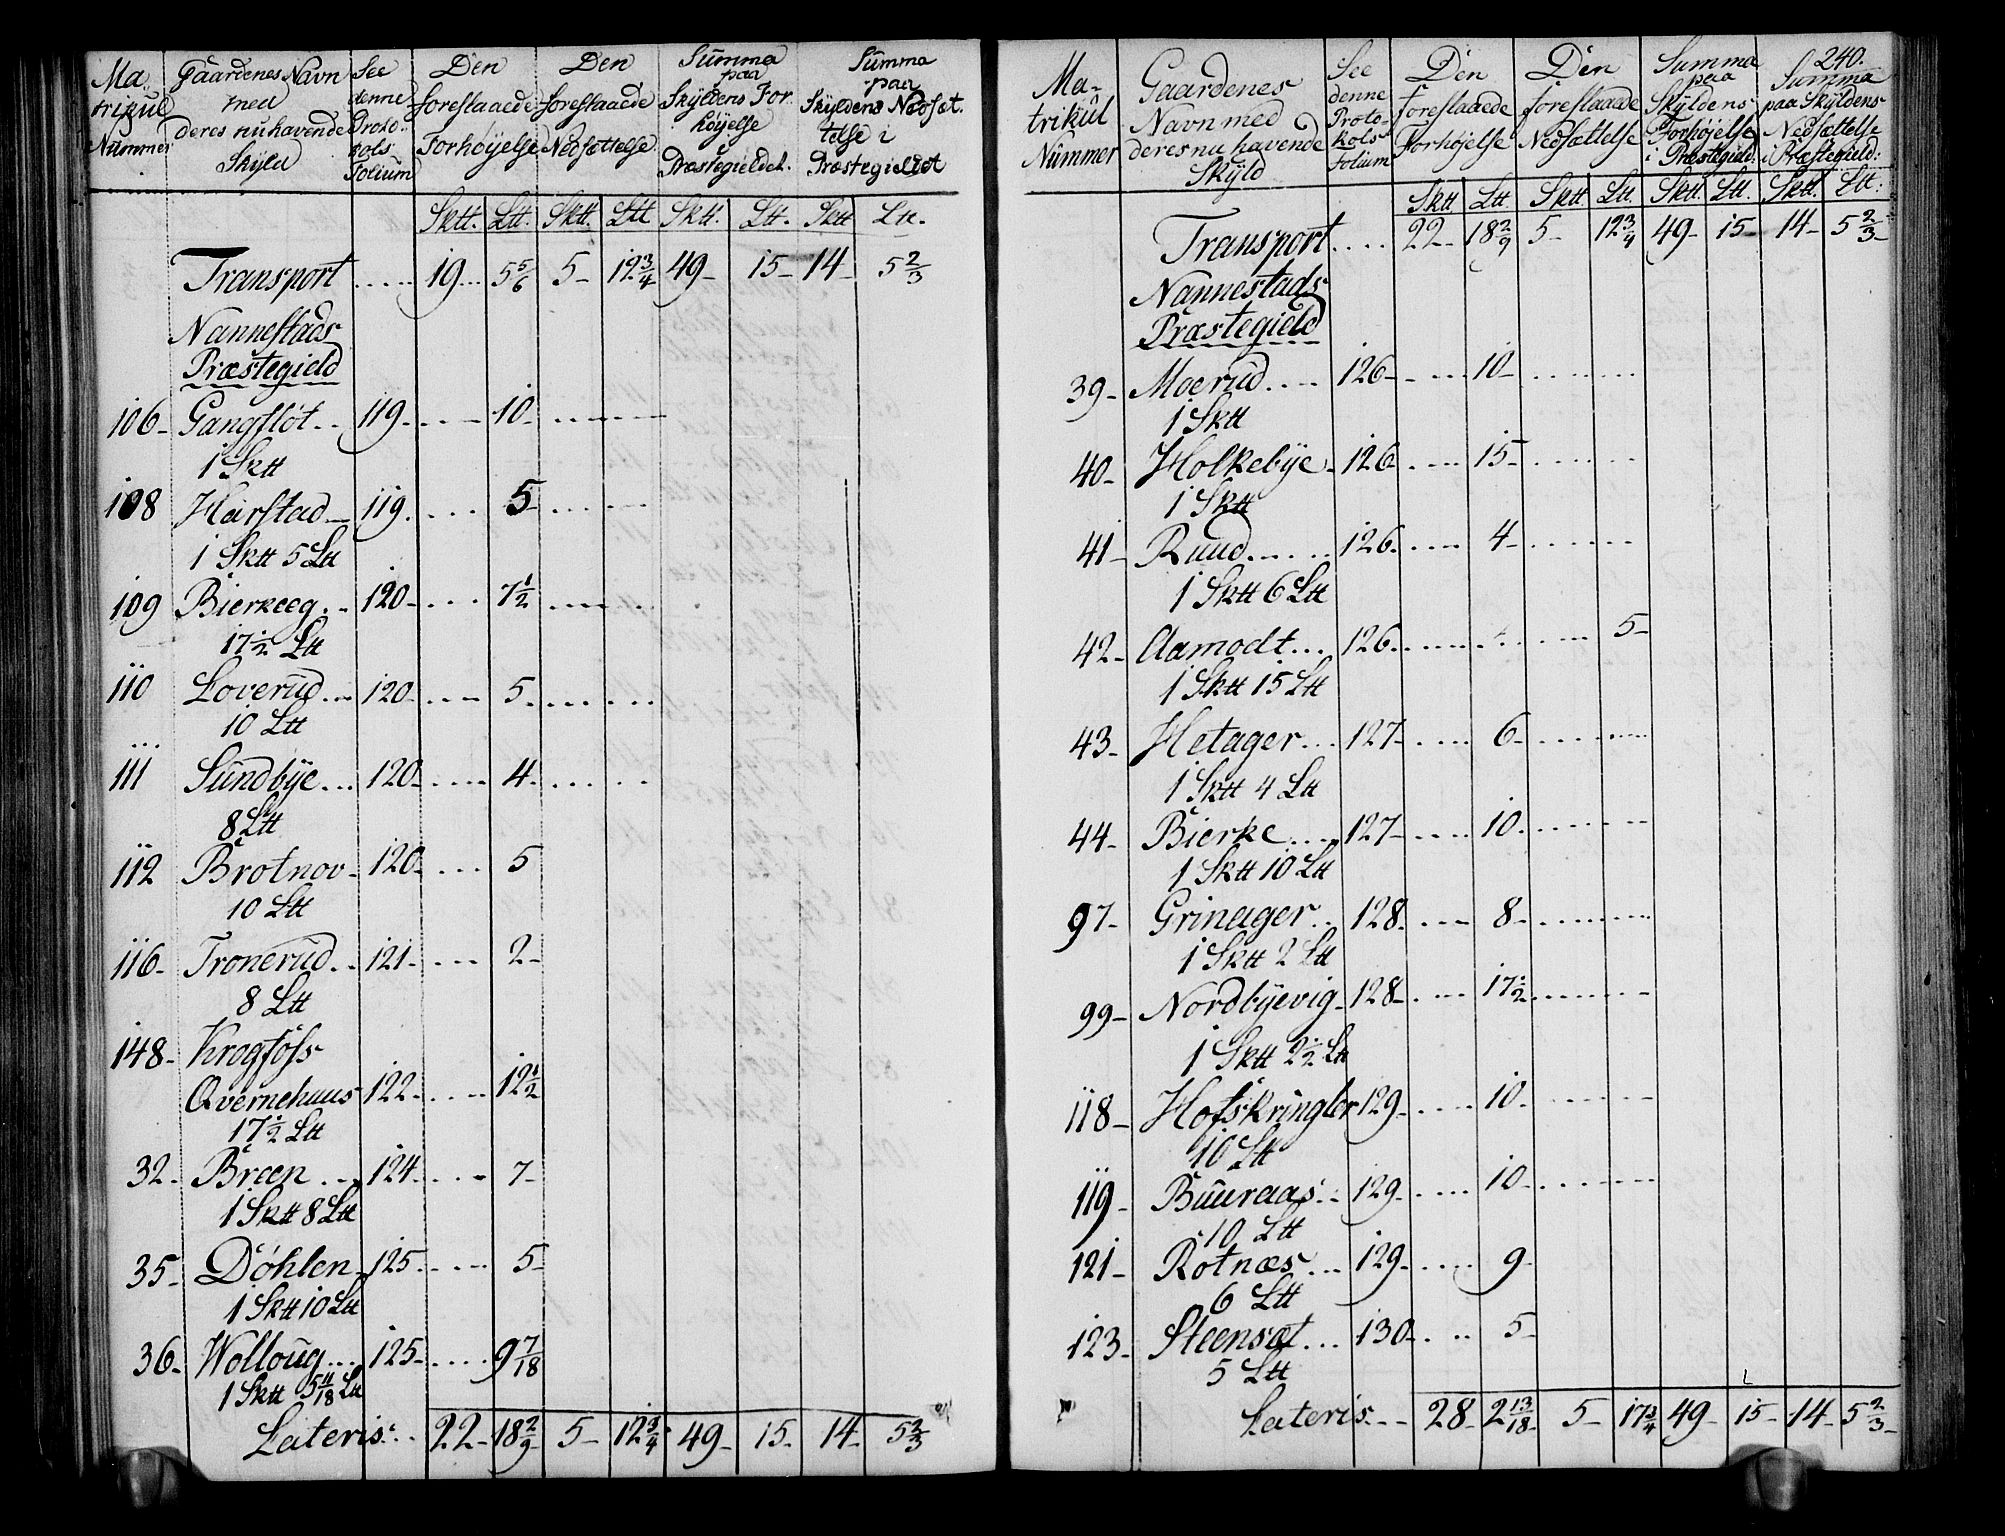 Ma- Gaardenes Navn See Den Den Summa Summa
trikul med denne foreslaaede foreslaaede paa paa
Nummer deres nuhavende Proto- Forhøyelse Nedsættelse Skyldens For- Skyldens Nedsæt-
Skyld kols høyelse i telse i
Folium Præstegieldet. Præstegieldet
Sktt. Ltt. Sktt. Ltt Sktt. Ltt. Sktt Ltt.
Transport ..... 19... 5 5/6 5- 12 3/4 49- 15- 14- 5 2/3
Nannestads
Præstegield
106- Gangfløt.. 119- .... 10. .......
1 Sktt
108 Harstad- 119. .... 5- .......
1 Sktt 5 Ltt
109 Bierkeeg.. 120- .... 7 1/2 .......
17 1/2 Ltt
110 Loverud... 120- .... 5. .......
10 Ltt
111 Sundbye... 120- ..... 4. .......
8 Ltt
112 Brotnov- 120- .... 5
10 Ltt
116- Tronerud.. 121- .... 2-
8 Ltt
148- Krogfoss
Qvernehaus 122- ..... 12 1/2
17 1/2 Ltt
32- Breen ... 124- .... 7-
1 Sktt 8 Ltt
35- Døhlen- 125. ..... 5-
1 Sktt 10 Ltt
36- Wolloug... 125- ..... 9 7/18
1 Sktt 5 11/18 Ltt
Lateris... 22- 18 2/9 5- 12 3/4 49- 15- 14- 5 2/3
240.
Ma- Gaardenes See Den Den Summa Summa
trikul Navn med denne foreslaaede foreslaaede paa paa Skyldens
Nummer deres nu havende Proto- Forhøjelse Nedsættelse Skyldens Nedsættelse
Skyld kols Forhøjelse i Præstegield:
Folium i Præstegield:
Sktt Ltt. Sktt. Ltt. Sktt. Ltt. Sktt. Ltt.
Transport .... 22- 18 2/9 5- 12 3/4 49- 15- 14- 5 2/3-
Nannestads
Præstegield
39- Moerud.... 126- ..... 10- .......
1 Sktt
40- Holkebye- 126- ..... 15- .......
1 Sktt
41- Ruud...... 126. ..... 4- .......
1 Sktt 6 Ltt
42- Aamodt... 126. ........... 5-
1 Sktt 15 Ltt
43- Hetager... 127- ..... 6- .......
1 Sktt 4 Ltt
44- Bierke.... 127- ..... 10. .......
1 Sktt 10 Ltt
97- Grinager.. 128. ..... 8- .......
1 Sktt 2 Ltt
99- Nordbyevig- 128- .... 17 1/2 .......
1 Sktt 2 1/2 Ltt
118- Hofskringler 129- ..... 10. .......
10 Ltt
119- Buuraas.. 129- ..... 10- .......
10 Ltt
121- Rotnæs... 129- ..... 9-
6 Ltt
123- Steensæt... 130- .... 5-
5 Ltt
Lateris.... 28- 2 13/18- 5- 17 3/4 49- 15- 14- 5 2/3-